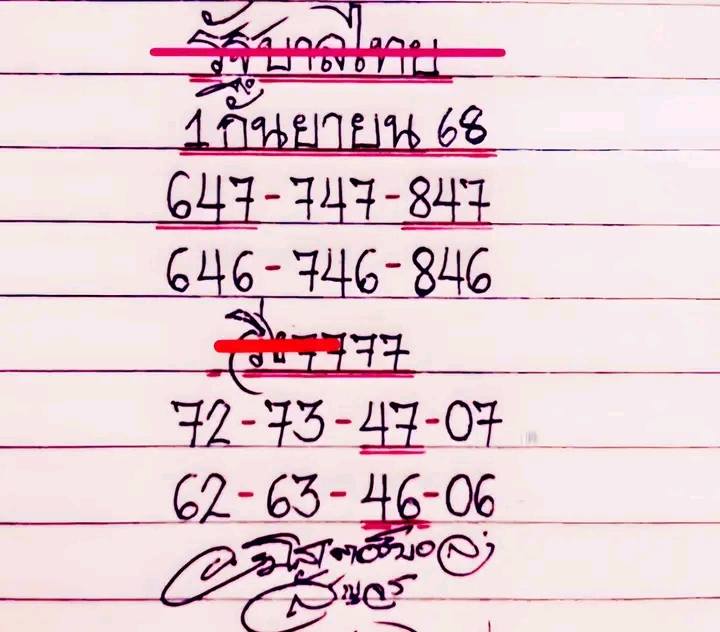 รัฐบาลไทย
1 กันยายน 68
647-747-847
646-746-846
วิ่ง7777
72-73-47-07
62-63-46-06